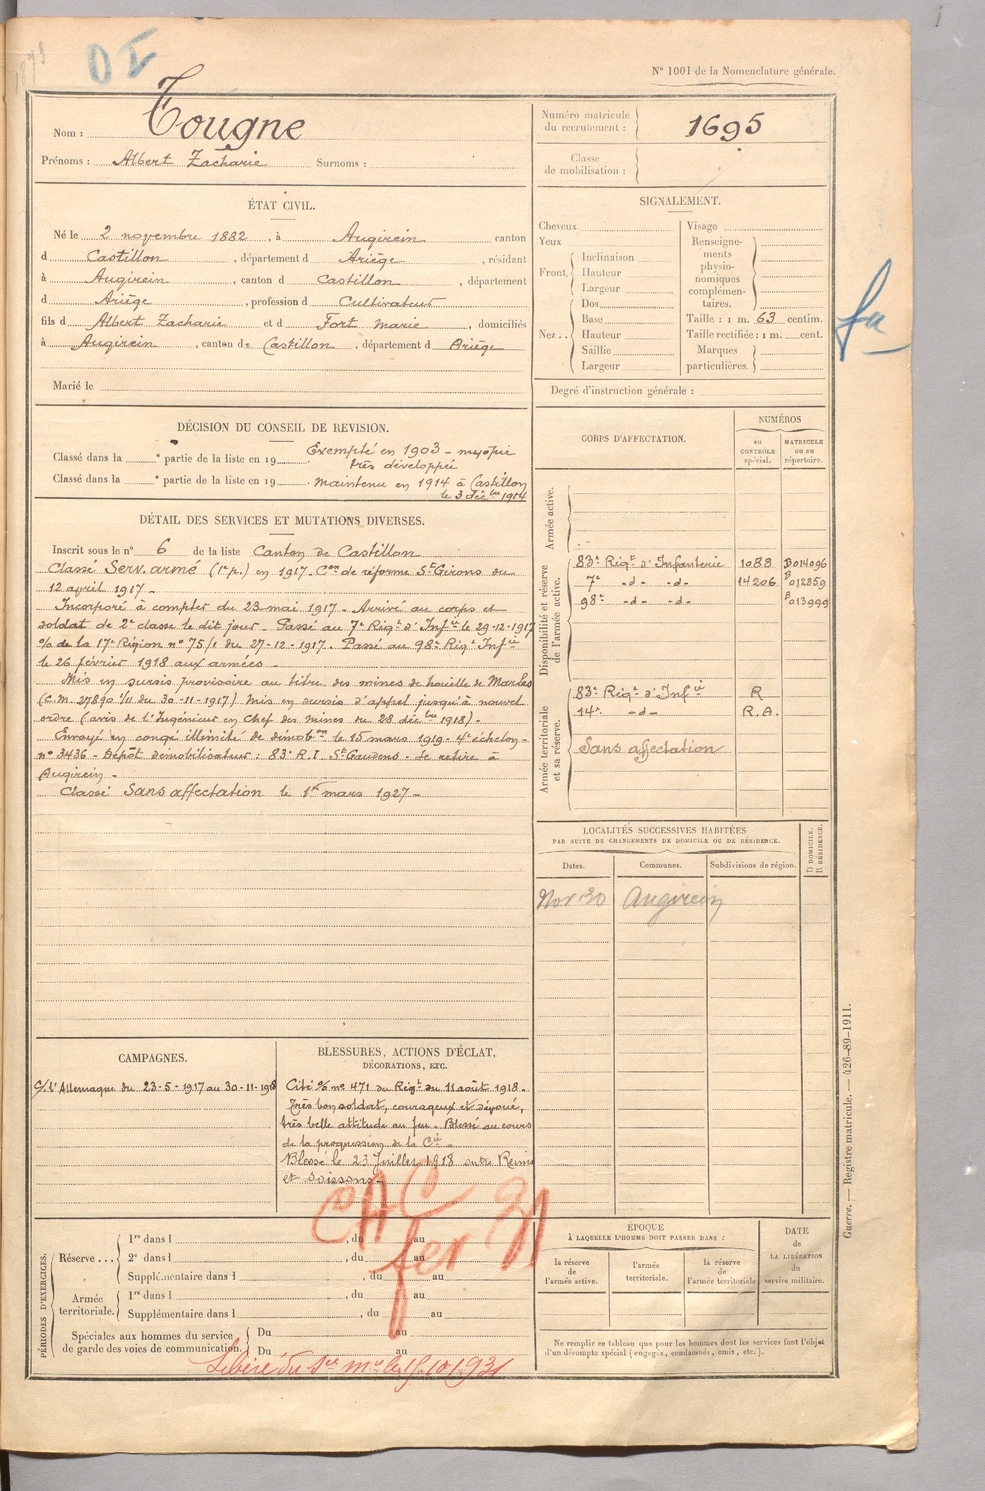 N° 1001 de la Nomenclature générale.
Nom : Tougne
Prénoms : Albert Zacharie Surnoms :
Numéro matricule du recrutement : 1695
Classe de mobilisation :
ÉTAT CIVIL.
Né le 2 novembre 1882, à Augirein canton
d Castillon, département d Ariège, résidant
à Augirein, canton d Castillon, département
d Ariège, profession d Cultivateur
fils d Albert Zacharie et d Fort Marie, domiciliés
à Augirein, canton de Castillon, département d Ariège
Marié le
SIGNALEMENT.
Cheveux
Yeux
Front. Inclinaison
Hauteur
Largeur
Nez.. Dos
Base
Hauteur
Saillie
Largeur
Visage
Renseigne-
ments
physio-
nomiques
complémen-
taires.
Taille : 1 m. 63 centim.
Taille rectifiée : 1 m. cent.
Marques
particulières.
Degré d'instruction générale :
DÉCISION DU CONSEIL DE REVISION.
Classé dans la e partie de la liste en 19 Exempté en 1903 - myopie
très développée
Classé dans la e partie de la liste en 19 maintenu en 1914 à Castillon
le 3 déc bre 1914
DÉTAIL DES SERVICES ET MUTATIONS DIVERSES.
Inscrit sous le n° 6 de la liste Canton de Castillon
Classé Serv. armé (1e p.) en 1917. Con de réforme St Girons du
12 avril 1917 -
Incorporé à compter du 23 mai 1917 - Arrivé au corps et
soldat de 2e classe le dit jour - Passé au 7e Régt d'Infie le 29-12-1917
o/o de la 17e Région n° 75/1 du 27-12-1917. Passé au 98e Régt Infie
le 26 février 1918 aux armées -
Mis en sursis provisoire au titre des mines de houille de Marles
(C.M. 27890 1/11 du 30-11-1917) Mis en sursis d'appel jusqu'à nouvel
ordre (avis de l'Ingénieur en Chef des mines du 28 déc bre 1918) -
Envoyé en congé illimité de démobon le 15 mars 1919 - 4e échelon -
n° 3436 - Dépôt démobilisateur : 83e R.I. St Gaudens - Se retire à
Augirein -
Classé Sans affectation le 1er mars 1927 -
CORPS D'AFFECTATION.
NUMÉROS
au CONTRÔLE spécial.
MATRICULE ou au répertoire.
Armée active.
Disponibilité et réserve de l'armée active.
83e Régt d'Infanterie 1088 D014096
7e -d- -d- 14206 B012859
98e -d- -d- B013999
Armée territoriale et sa réserve.
83e Régt d'Infie R
14e -d- R.A.
Sans affectation
LOCALITÉS SUCCESSIVES HABITÉES
PAR SUITE DE CHANGEMENTS DE DOMICILE OU DE RÉSIDENCE.
Dates. Communes. Subdivisions de région. D. DOMICILE. R. RÉSIDENCE.
Nov 30 Augirein
CAMPAGNES.
C/ l'Allemagne du 23-5-1917 au 30-11-1918
BLESSURES, ACTIONS D'ÉCLAT,
DÉCORATIONS, ETC.
Cité o/o n° 471 du Régt du 11 août 1918 -
Très bon soldat, courageux et dévoué,
très belle attitude au feu. Blessé au cours
de la progression de la Cie -
Blessé le 23 Juillet 1918 entre Reims
et Soissons -
CAC
PÉRIODES D'EXERCICES.
Réserve... 1re dans l , du au
2e dans l , du au
Supplémentaire dans l , du au
Armée territoriale. 1re dans l , du au
Supplémentaire dans l , du au
Spéciales aux hommes du service
de garde des voies de communication. Du au
Du au
Libéré du Sce
ÉPOQUE
À LAQUELLE L'HOMME DOIT PASSER DANS :
la réserve de l'armée active.
l'armée territoriale.
la réserve de l'armée territoriale
DATE de LA LIBÉRATION du service militaire.
Ne remplir ce tableau que pour les hommes dont les services font l'objet
d'un décompte spécial (engagés, condamnés, omis, etc.).
Guerre. — Registre matricule. — 426-89-1911.